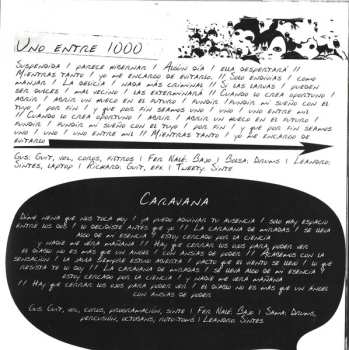 Uno entre 1000
Suspendida ! parece hibernar ! Algún día ! ella despertará !!
Mientras tanto ! yo me encargo de evitarlo !! Solo envidias ! como
manjar ! la delicia ! nada más criminal !! Si las larvas ! pueden
ser dulces ! mal vecino ! las exterminará !! Cuando lo crea oportuno !
abriré ! abriré un hueco en el futuro ! fundiré ! fundiré mi sueño con el
tuyo ! por fin ! y que por fin seamos uno ! uno ! uno entre mil
!! Cuando lo crea oportuno ! abriré ! abriré un hueco en el futuro !
fundiré ! fundiré mi sueño con el tuyo ! por fin ! y que por fin seamos
uno ! uno ! uno entre mil !! Mientras tanto ! yo me encargo de
evitarlo
Gus: Guit, voz, coros, filtros ! Fer Nalé: Bajo ! Bolsa: Drums ! Leandro:
Sintes, laptop ! Richard: Guit, efx ! Tweety: Sinte
Caravana
Dime nena que nos toca hoy ! ya puedo adivinar tu ausencia ! solo hay espacio
entre los dos ! lo decidiste antes que yo !! La caravana de miradas ! se lleva
algo de mi esencia ! estoy cercado por la ciencia
y nadie me verá mañana !! Hay que cerrar los ojos para poder ver
el diablo no es más que un ángel ! con ansias de poder !! Acabemos con la
sensación ! la jaula siempre estuvo abierta ! pacto que el viento se llevó ! lo que
resista te lo doy !! La caravana de miradas ! se lleva algo de mi esencia
! estoy cercado por la ciencia ! y nadie me verá mañana
!! Hay que cerrar los ojos para poder ver ! el diablo no es más que un ángel
con ansias de poder
Gus: Guit, voz, coros, programación, sinte ! Fer Nalé: Bajo ! Sama: Drums,
percusión, octobans, rototoms ! Leandro: Sintes